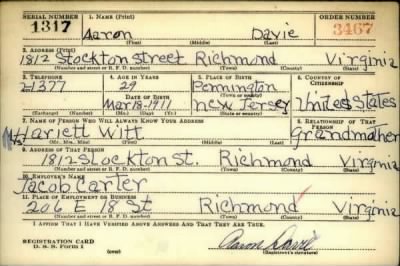 SERIAL NUMBER 1. NAME (Print) ORDER NUMBER
1317 Aaron Davie 3467
(First) (Middle) (Last)
2. ADDRESS (Print)
1812 Stockton Street Richmond Virginia
(Number and street or R. F. D. number) (Town) (County) (State)
3. TELEPHONE 4. AGE IN YEARS 5. PLACE OF BIRTH 6. COUNTRY OF CITIZENSHIP
21377 29 Pennington
DATE OF BIRTH (Town or county)
Mar 18-1911 New Jersey United States
(Mo.) (Day) (Yr.) (State or country)
7. NAME OF PERSON WHO WILL ALWAYS KNOW YOUR ADDRESS 8. RELATIONSHIP OF THAT PERSON
Mrs Hariett Witt Grandmother
(Mr., Mrs., Miss) (First) (Middle) (Last)
9. ADDRESS OF THAT PERSON
1812 Stockton St. Richmond Virginia
(Number and street or R. F. D. number) (Town) (County) (State)
10. EMPLOYER'S NAME
Jacob Carter
11. PLACE OF EMPLOYMENT OR BUSINESS
206 E 18 St Richmond Virginia
(Number and street or R. F. D. number) (Town) (County) (State)
I AFFIRM THAT I HAVE VERIFIED ABOVE ANSWERS AND THAT THEY ARE TRUE.
REGISTRATION CARD
D. S. S. Form 1 Aaron Davie
(Registrant's signature)